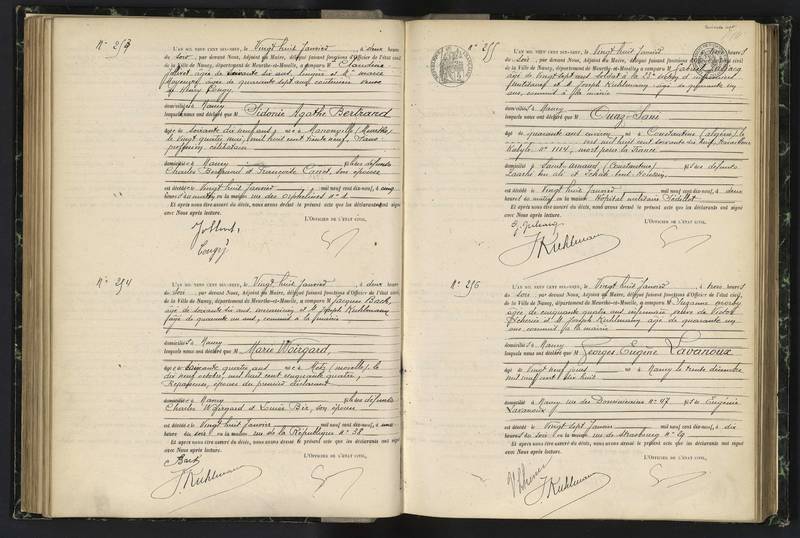 N° 253
L'AN MIL NEUF CENT DIX-NEUF, le Vingt huit Janvier à deux heures
du soir, par devant Nous, Adjoint au Maire, délégué faisant fonctions d'Officier de l'état civil
de la Ville de Nancy, département de Meurthe-et-Moselle, a comparu M Claudine
domicilié s à Nancy
lesquels nous ont déclaré que M Sidonie Agathe Bertrand
âgé e de soixante dix neuf ans née à Manonville (Meurthe)
le vingt quatre mil huit cent trente neuf, sans
profession, célibataire
domicilié e à Nancy fille des défunts
Charles Bertrand et Françoise son épouse
est décédé e le vingt huit Janvier mil neuf cent dix-neuf, à cinq
heures du matin, en la maison rue des Orphelines n° 1
Et après nous être assuré du décès, nous avons dressé le présent acte que les déclarants ont signé
avec Nous après lecture.
L'OFFICIER DE L'ÉTAT CIVIL,
N° 254
L'AN MIL NEUF CENT DIX-NEUF, le Vingt huit Janvier à deux heures
du soir, par devant Nous, Adjoint au Maire, délégué faisant fonctions d'Officier de l'état civil
de la Ville de Nancy, département de Meurthe-et-Moselle, a comparu M Jacques Bach,
âgé de soixante six ans, et M Joseph Kuhlmann
âgé de quarante un ans, commis à la mairie
domicilié s à Nancy
lesquels nous ont déclaré que M Marie Woirgard,
âgé e de soixante quatre ans née à Metz (Moselle) le
dix neuf octobre mil huit cent cinquante quatre,
Repasseuse, épouse du premier déclarant
domicilié e à Nancy fille des défunts
Charles Woirgard et Louise son épouse
est décédé e le vingt huit Janvier mil neuf cent dix-neuf, à une
heure du soir, en la maison rue de la République n° 38
Et après nous être assuré du décès, nous avons dressé le présent acte que les déclarants ont signé
avec Nous après lecture.
L'OFFICIER DE L'ÉTAT CIVIL,
Bach
J. Kuhlmann
N° 255
L'AN MIL NEUF CENT DIX-NEUF, le Vingt huit Janvier à trois heures
du soir, par devant Nous, Adjoint au Maire, délégué faisant fonctions d'Officier de l'état civil
de la Ville de Nancy, département de Meurthe-et-Moselle, a comparu M
âgé de vingt sept ans soldat à la 23e section d'infirmiers
militaires et M Joseph Kuhlmann âgé de quarante un
ans, commis à la mairie
domicilié s à Nancy
lesquels nous ont déclaré que M
âgé de quarante ans environ né à Constantine (Algérie) le
mil huit cent soixante dix neuf,
n° 1114, mort pour la France
domicilié à Saint-Arnaud (Constantine) fils des défunts
est décédé le vingt huit Janvier mil neuf cent dix-neuf, à deux
heures du matin, en la maison Hôpital militaire Sédillot
Et après nous être assuré du décès, nous avons dressé le présent acte que les déclarants ont signé
avec Nous après lecture.
L'OFFICIER DE L'ÉTAT CIVIL,
J. Kuhlmann
N° 256
L'AN MIL NEUF CENT DIX-NEUF, le Vingt huit Janvier à trois heures
du soir, par devant Nous, Adjoint au Maire, délégué faisant fonctions d'Officier de l'état civil
de la Ville de Nancy, département de Meurthe-et-Moselle, a comparu M Suzanne
âgée de cinquante quatre ans infirmière veuve de Victor
et M Joseph Kuhlmann âgé de quarante un
ans, commis à la mairie
domicilié s à Nancy
lesquels nous ont déclaré que M Georges Eugène Lavanoux
âgé de vingt neuf jours né à Nancy le trente décembre
mil neuf cent dix huit
domicilié à Nancy rue des Dominicains n° 47 fils de Eugénie
Lavanoux
est décédé le vingt sept Janvier mil neuf cent dix-neuf, à dix
heures du soir, en la maison rue de Strasbourg n° 29
Et après nous être assuré du décès, nous avons dressé le présent acte que les déclarants ont signé
avec Nous après lecture.
L'OFFICIER DE L'ÉTAT CIVIL,
J. Kuhlmann